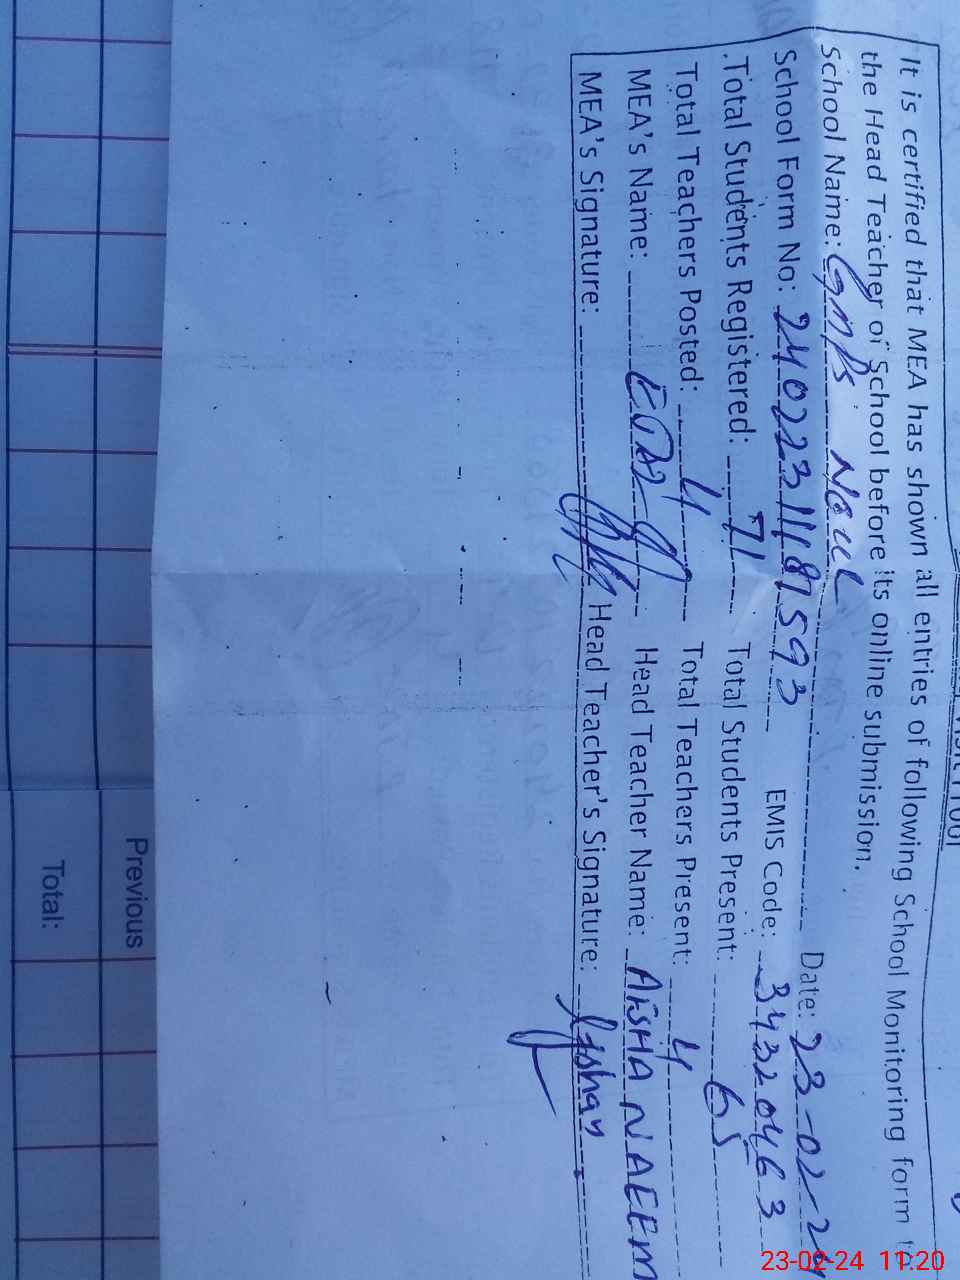 It is certified that MEA has shown all entries of following School Monitoring form to
the Head Teacher of School before its online submission.
School Name: GMPS Naul Date: 23-02-24
School Form No: 24022311187593 EMIS Code: 34320463
Total Students Registered: 71 Total Students Present: 65
Total Teachers Posted: 4 Total Teachers Present: 4
MEA's Name: Head Teacher Name: AISHA NAEEM
MEA's Signature: Head Teacher's Signature:
Previous
Total:
23-02-24 11:20